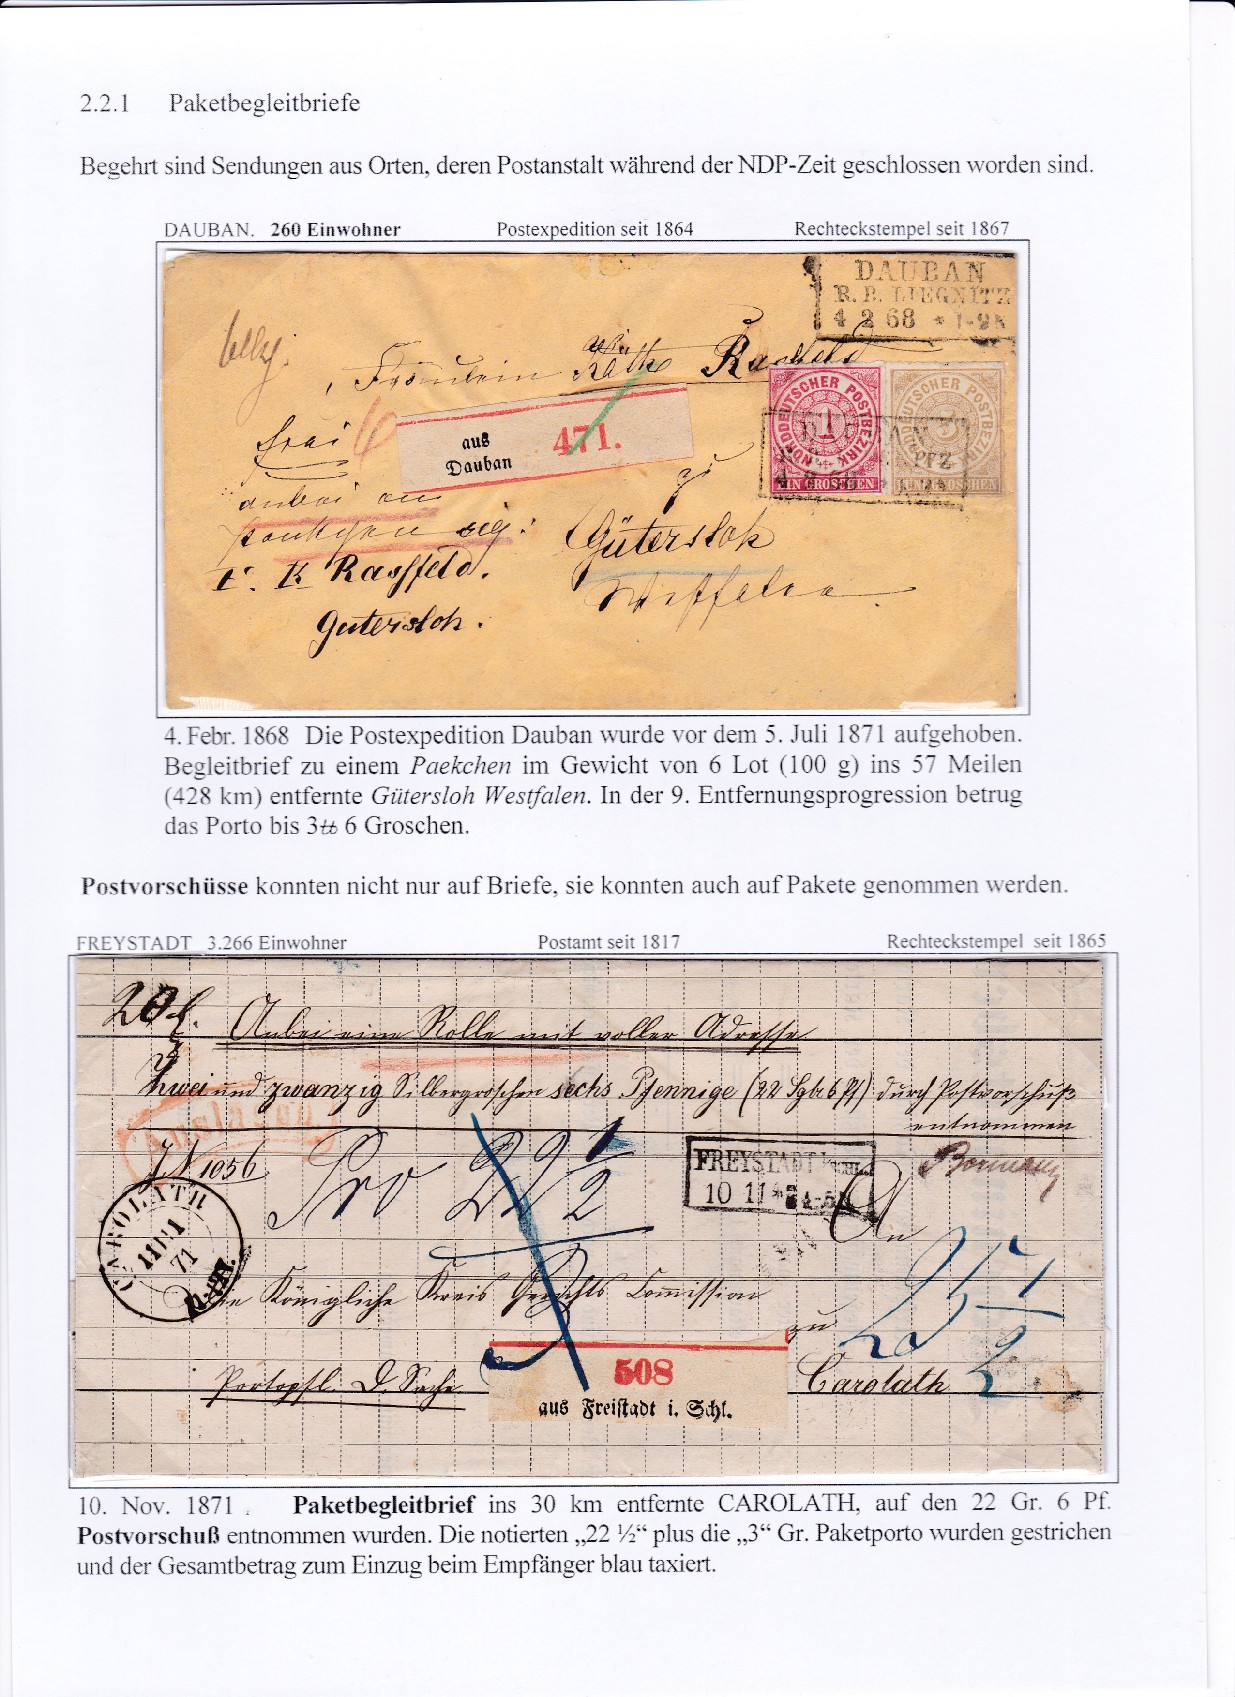 2.2.1 Paketbegleitbriefe
Begehrt sind Sendungen aus Orten, deren Postanstalt während der NDP-Zeit geschlossen worden sind.
DAUBAN. 260 Einwohner Postexpedition seit 1864 Rechteckstempel seit 1867
DAUBAN
R. B. LIEGNITZ
4 2 68 * 1-2N
Fräulein Käth Rassfeld
frei
6
aus
Dauban
471.
NORDDEUTSCHER POSTBEZIRK
1
EIN GROSCHEN
NORDDEUTSCHER POSTBEZIRK
5
FÜNF GROSCHEN
anbei ein
zu
Gütersloh
Westfalen
F. K Rassfeld.
Gütersloh.
4. Febr. 1868 Die Postexpedition Dauban wurde vor dem 5. Juli 1871 aufgehoben.
Begleitbrief zu einem Paekchen im Gewicht von 6 Lot (100 g) ins 57 Meilen
(428 km) entfernte Gütersloh Westfalen. In der 9. Entfernungsprogression betrug
das Porto bis 3 ℔ 6 Groschen.
Postvorschüsse konnten nicht nur auf Briefe, sie konnten auch auf Pakete genommen werden.
FREYSTADT 3.266 Einwohner Postamt seit 1817 Rechteckstempel seit 1865
Anbei eine Rolle mit voller Adresse
Zwei und zwanzig Silbergroschen sechs Pfennige (22 Sgr 6 Pf) durch Postvorschuß
entnommen
Auslagen
1056
Pro 22 1/2
FREYSTADT
10 11
An
CAROLATH
11 11
71
Die Königliche Kreis Gerichts Commission
zu
25 1/2
508
aus Freistadt i. Schl.
Portopfl. D. Sache
Carolath
10. Nov. 1871. Paketbegleitbrief ins 30 km entfernte CAROLATH, auf den 22 Gr. 6 Pf.
Postvorschuß entnommen wurden. Die notierten „22 ½“ plus die „3“ Gr. Paketporto wurden gestrichen
und der Gesamtbetrag zum Einzug beim Empfänger blau taxiert.